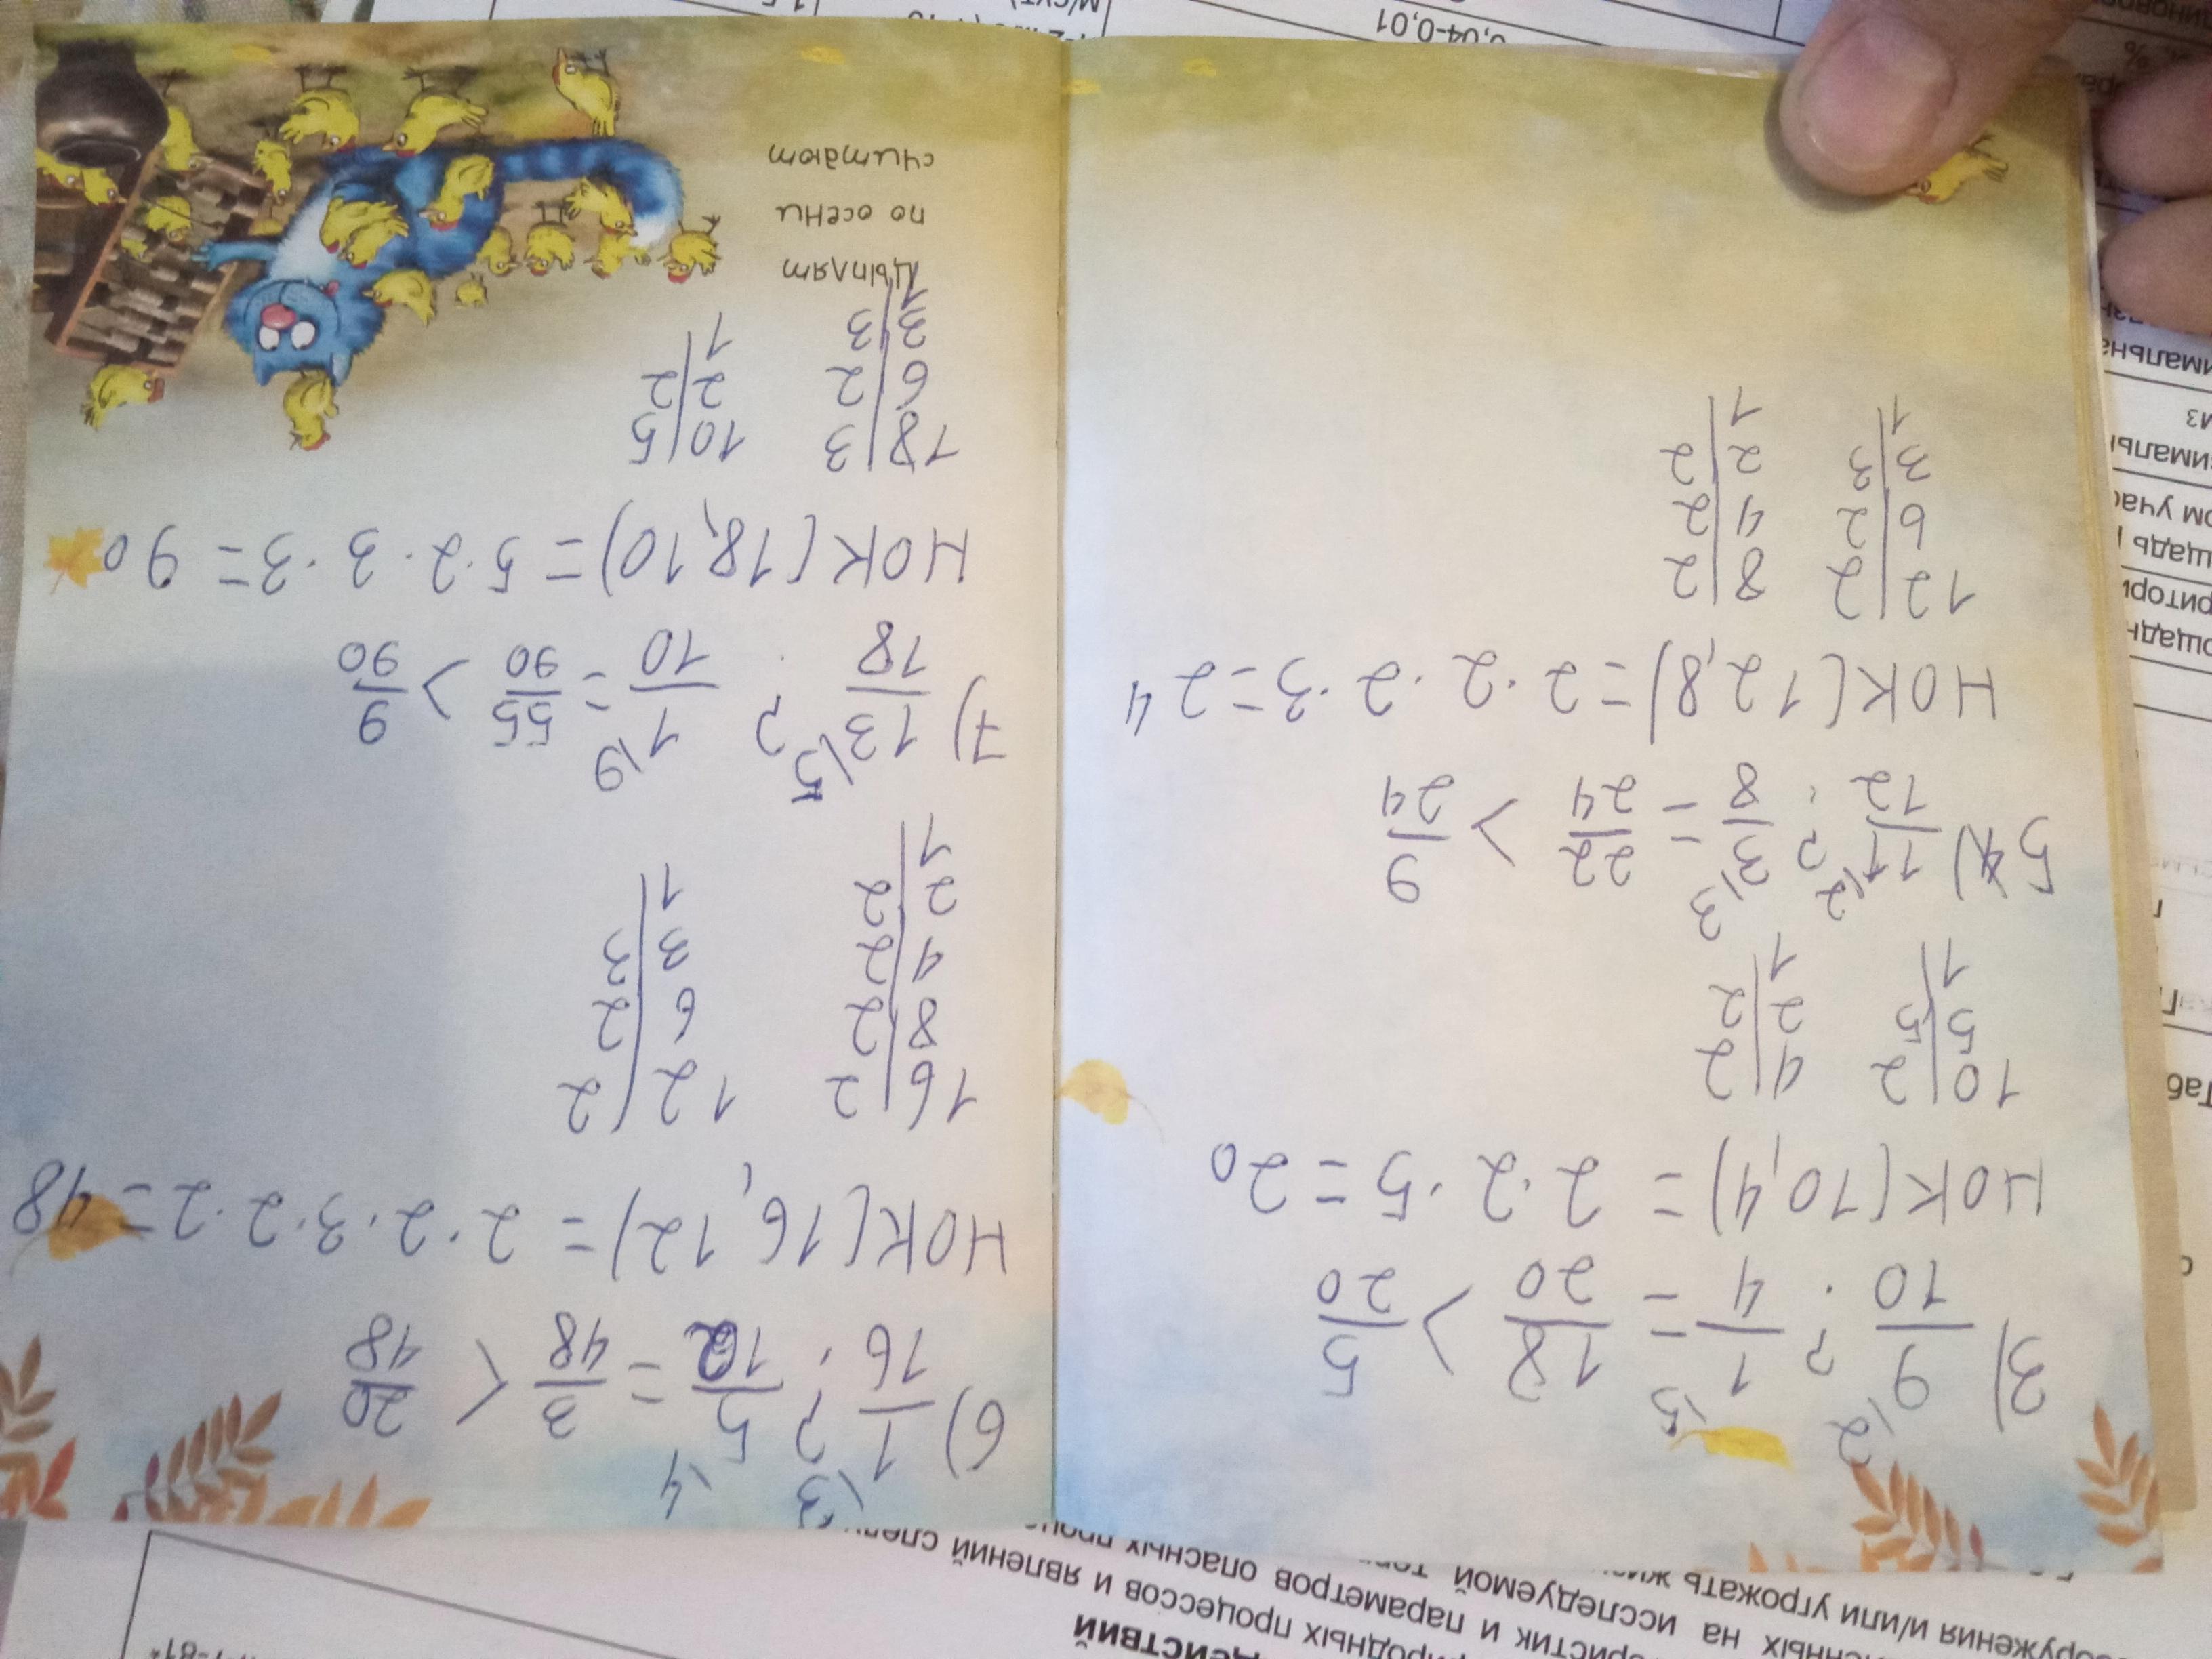 действий
процессов и явлений
и параметров опасных
на исследуемой
и/или угрожать
3) 9\2/10 ? 1\5/4 = 18/20 > 5/20
НОК(10,4) = 2·2·5=20
10|2 4|2
5|5 2|2
1 1
5) 11\2/12 ? 3\3/8 = 22/24 > 9/24
НОК(12,8)=2·2·2·3=24
12|2 8|2
6|2 4|2
3|3 2|2
1 1
6) 1\3/16 ? 5\4/12 = 3/48 < 20/48
НОК(16,12)= 2·2·3·2·2=48
16|2 12|2
8|2 6|2
4|2 3|3
2|2 1
1
7) 13\5/18 ? 1\9/10 = 55/90 > 9/90
НОК(18,10)=5·2·3·3=90
18|3 10|5
6|2 2|2
3|3 1
1
Цыплят
по осени
считают
0,04-0,01